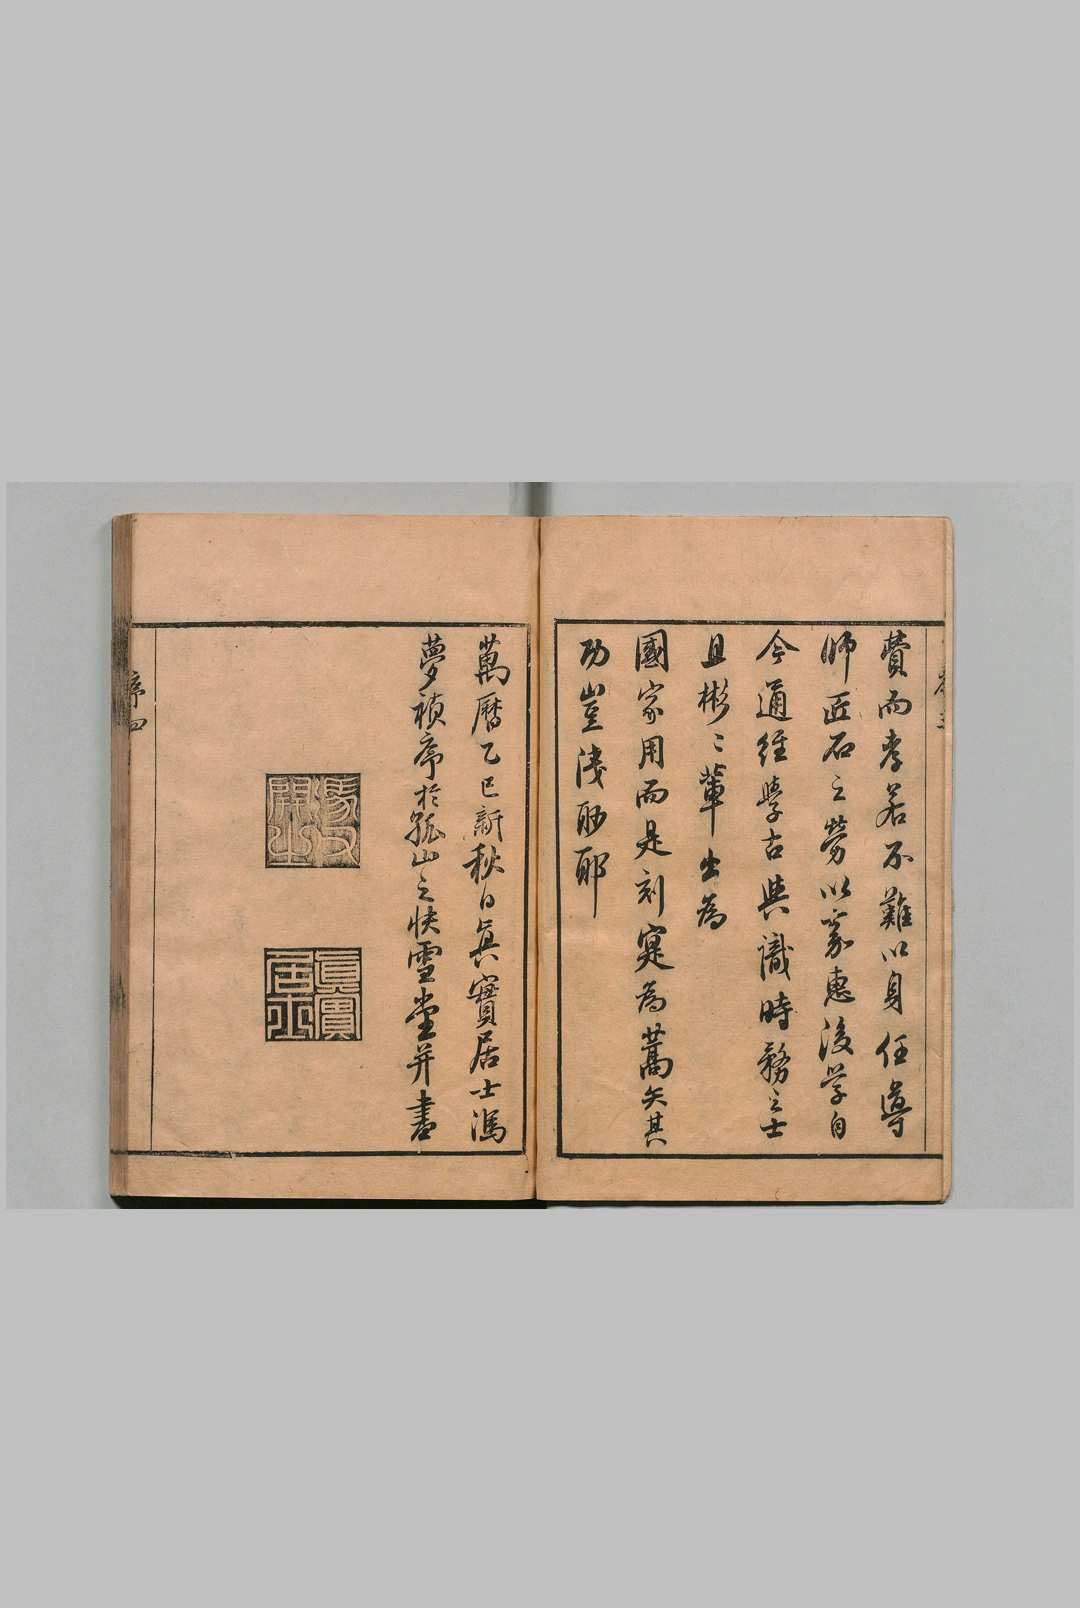 費而孝若不難以身任導
師匠石之勞以嘉惠後學自
今通經學古與識時務之士
且彬〻輩出為
國家用而是刻寔為蒿矢其
功豈淺尠耶
萬曆乙巳新秋日眞實居士馮
夢禎序於孤山之快雪堂并書
馮氏開之
眞實居士
序四